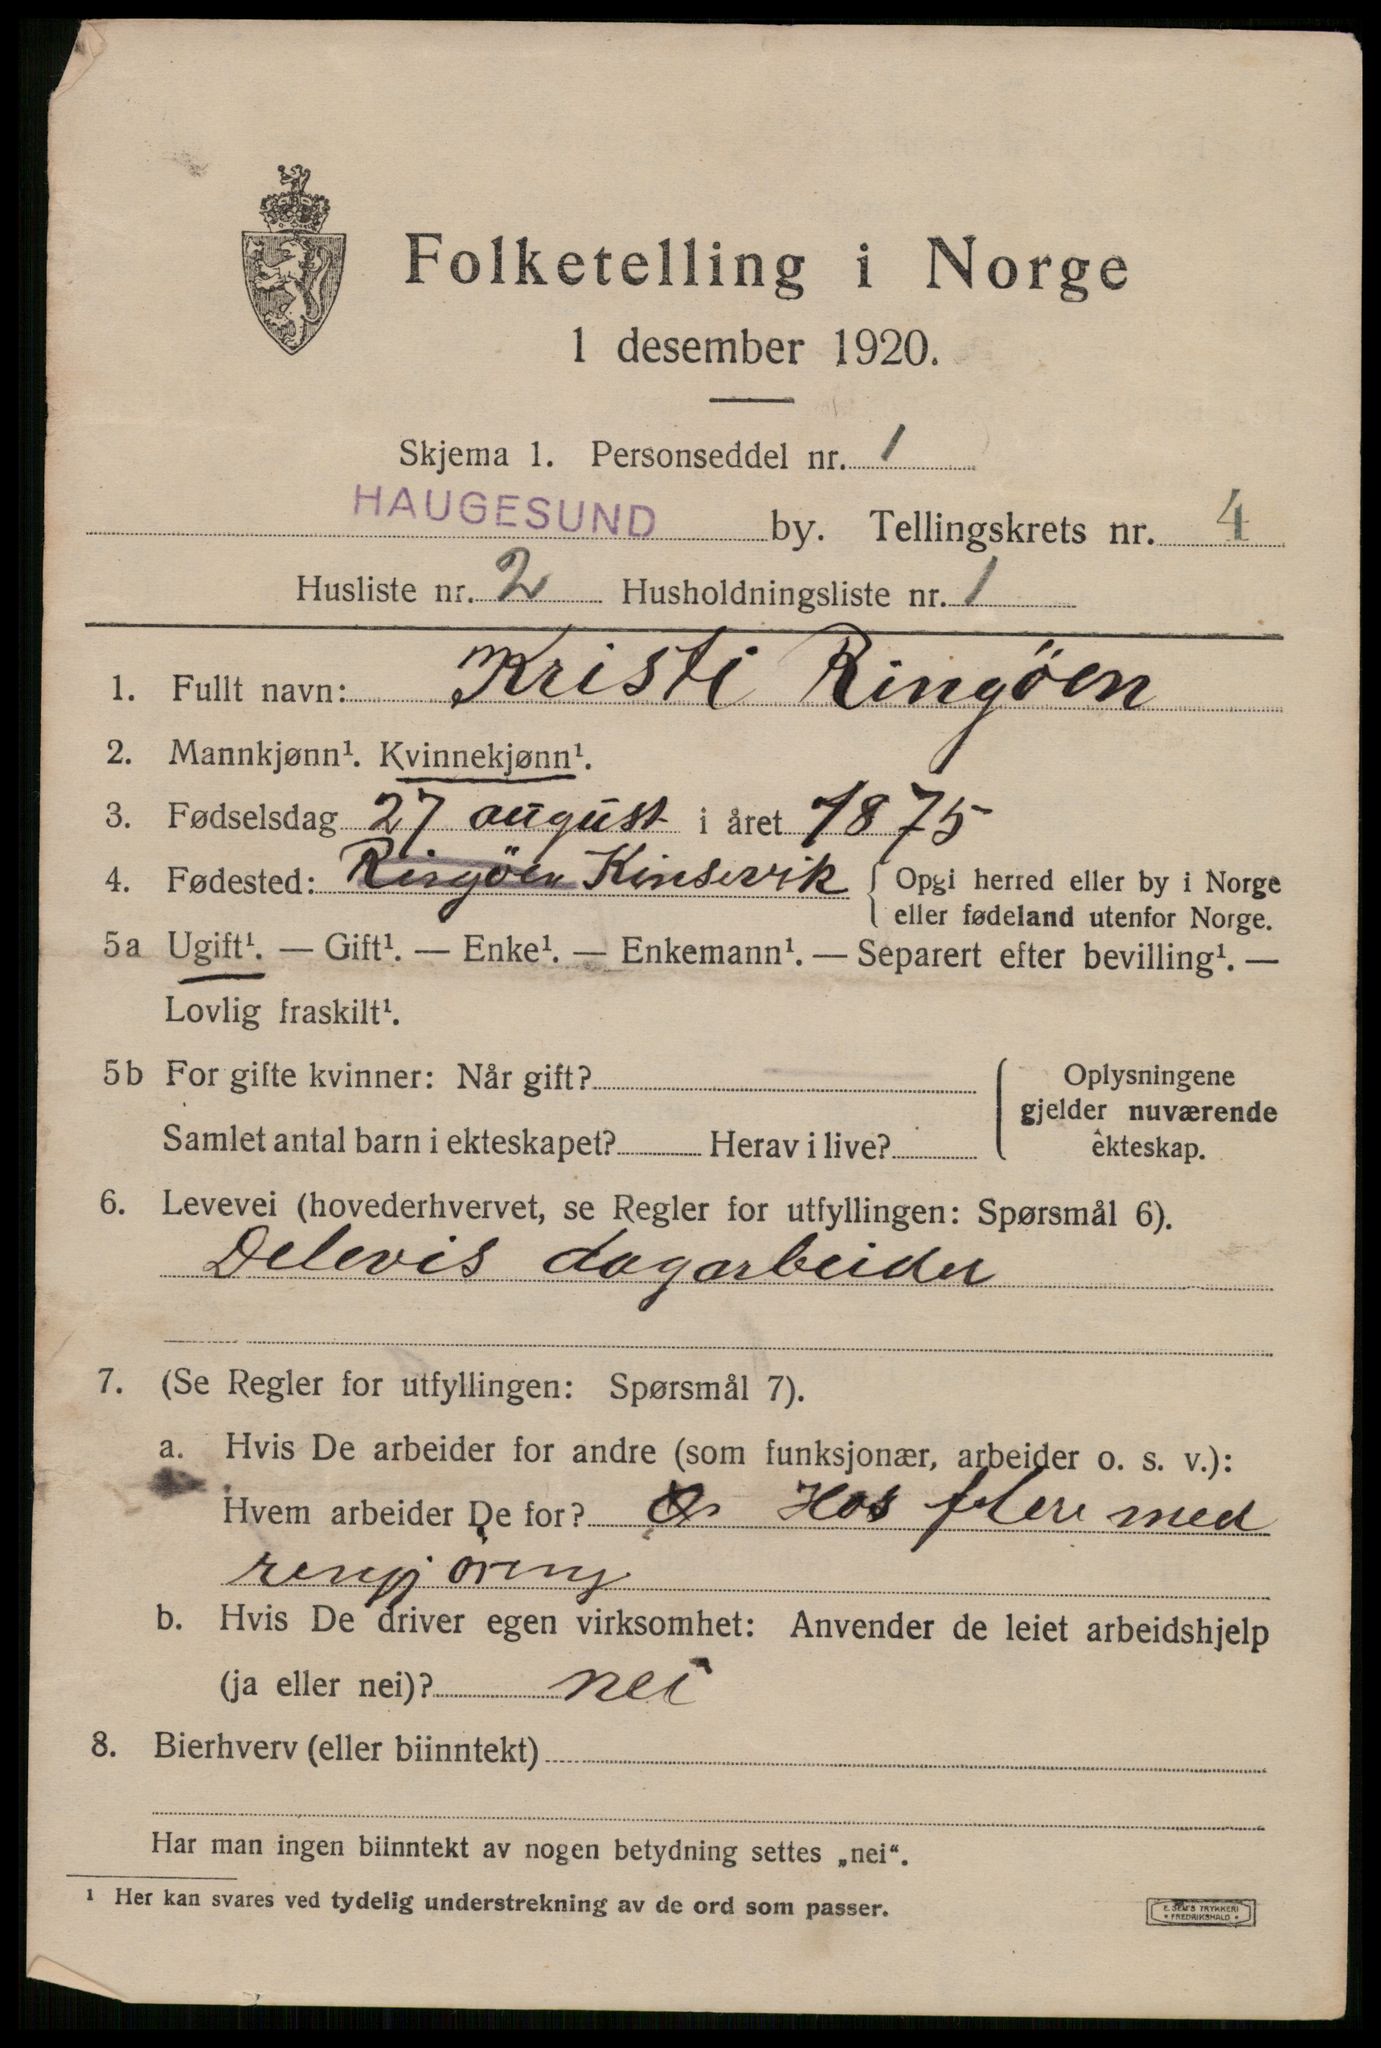 Folketelling i Norge
1 desember 1920.
Skjema 1. Personseddel nr. 1
HAUGESUND by. Tellingskrets nr. 4
Husliste nr. 2 Husholdningsliste nr. 1
1. Fullt navn: Kristi Ringöen
2. Mannkjønn¹. Kvinnekjønn¹.
3. Fødselsdag 27 august i året 1875
4. Fødested: Ringöen Kinservik { Opgi herred eller by i Norge
eller fødeland utenfor Norge.
5a Ugift¹. — Gift¹. — Enke¹. — Enkemann¹. — Separert efter bevilling¹. —
Lovlig fraskilt¹.
5b For gifte kvinner: Når gift?
Samlet antal barn i ekteskapet? Herav i live?
{ Oplysningene
gjelder nuværende
ekteskap.
6. Levevei (hovederhvervet, se Regler for utfyllingen: Spørsmål 6).
Delevis dagarbeider
7. (Se Regler for utfyllingen: Spørsmål 7).
a. Hvis De arbeider for andre (som funksjonær, arbeider o. s. v.):
Hvem arbeider De for? Hos flere med
rengjöring
b. Hvis De driver egen virksomhet: Anvender de leiet arbeidshjelp
(ja eller nei)? nei
8. Bierhverv (eller biinntekt)
Har man ingen biinntekt av nogen betydning settes „nei“.
¹ Her kan svares ved tydelig understrekning av de ord som passer.
E. SEM'S TRYKKERI
* FREDRIKSHALD *